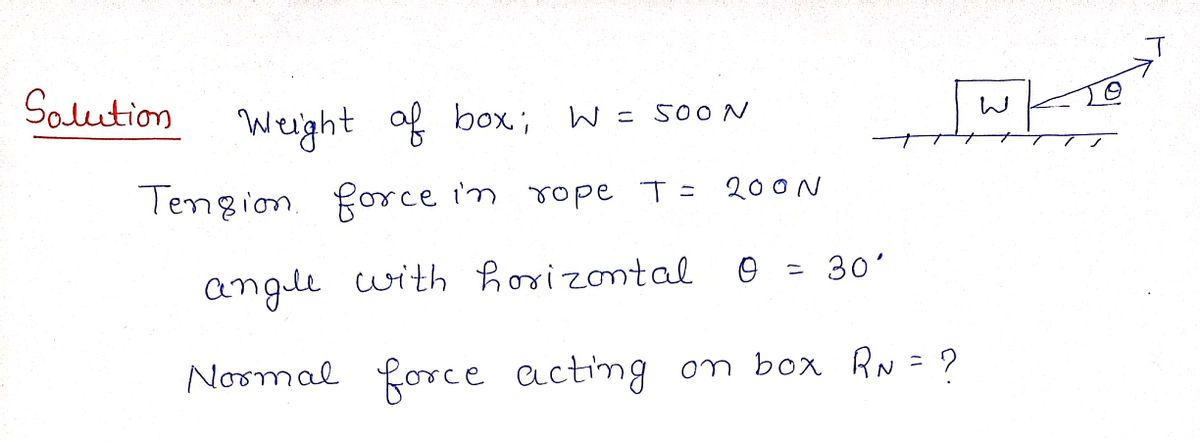 T
W
θ
Solution Weight of box; W = 500 N
Tension force in rope T = 200N
angle with horizontal θ = 30°
Normal force acting on box RN = ?